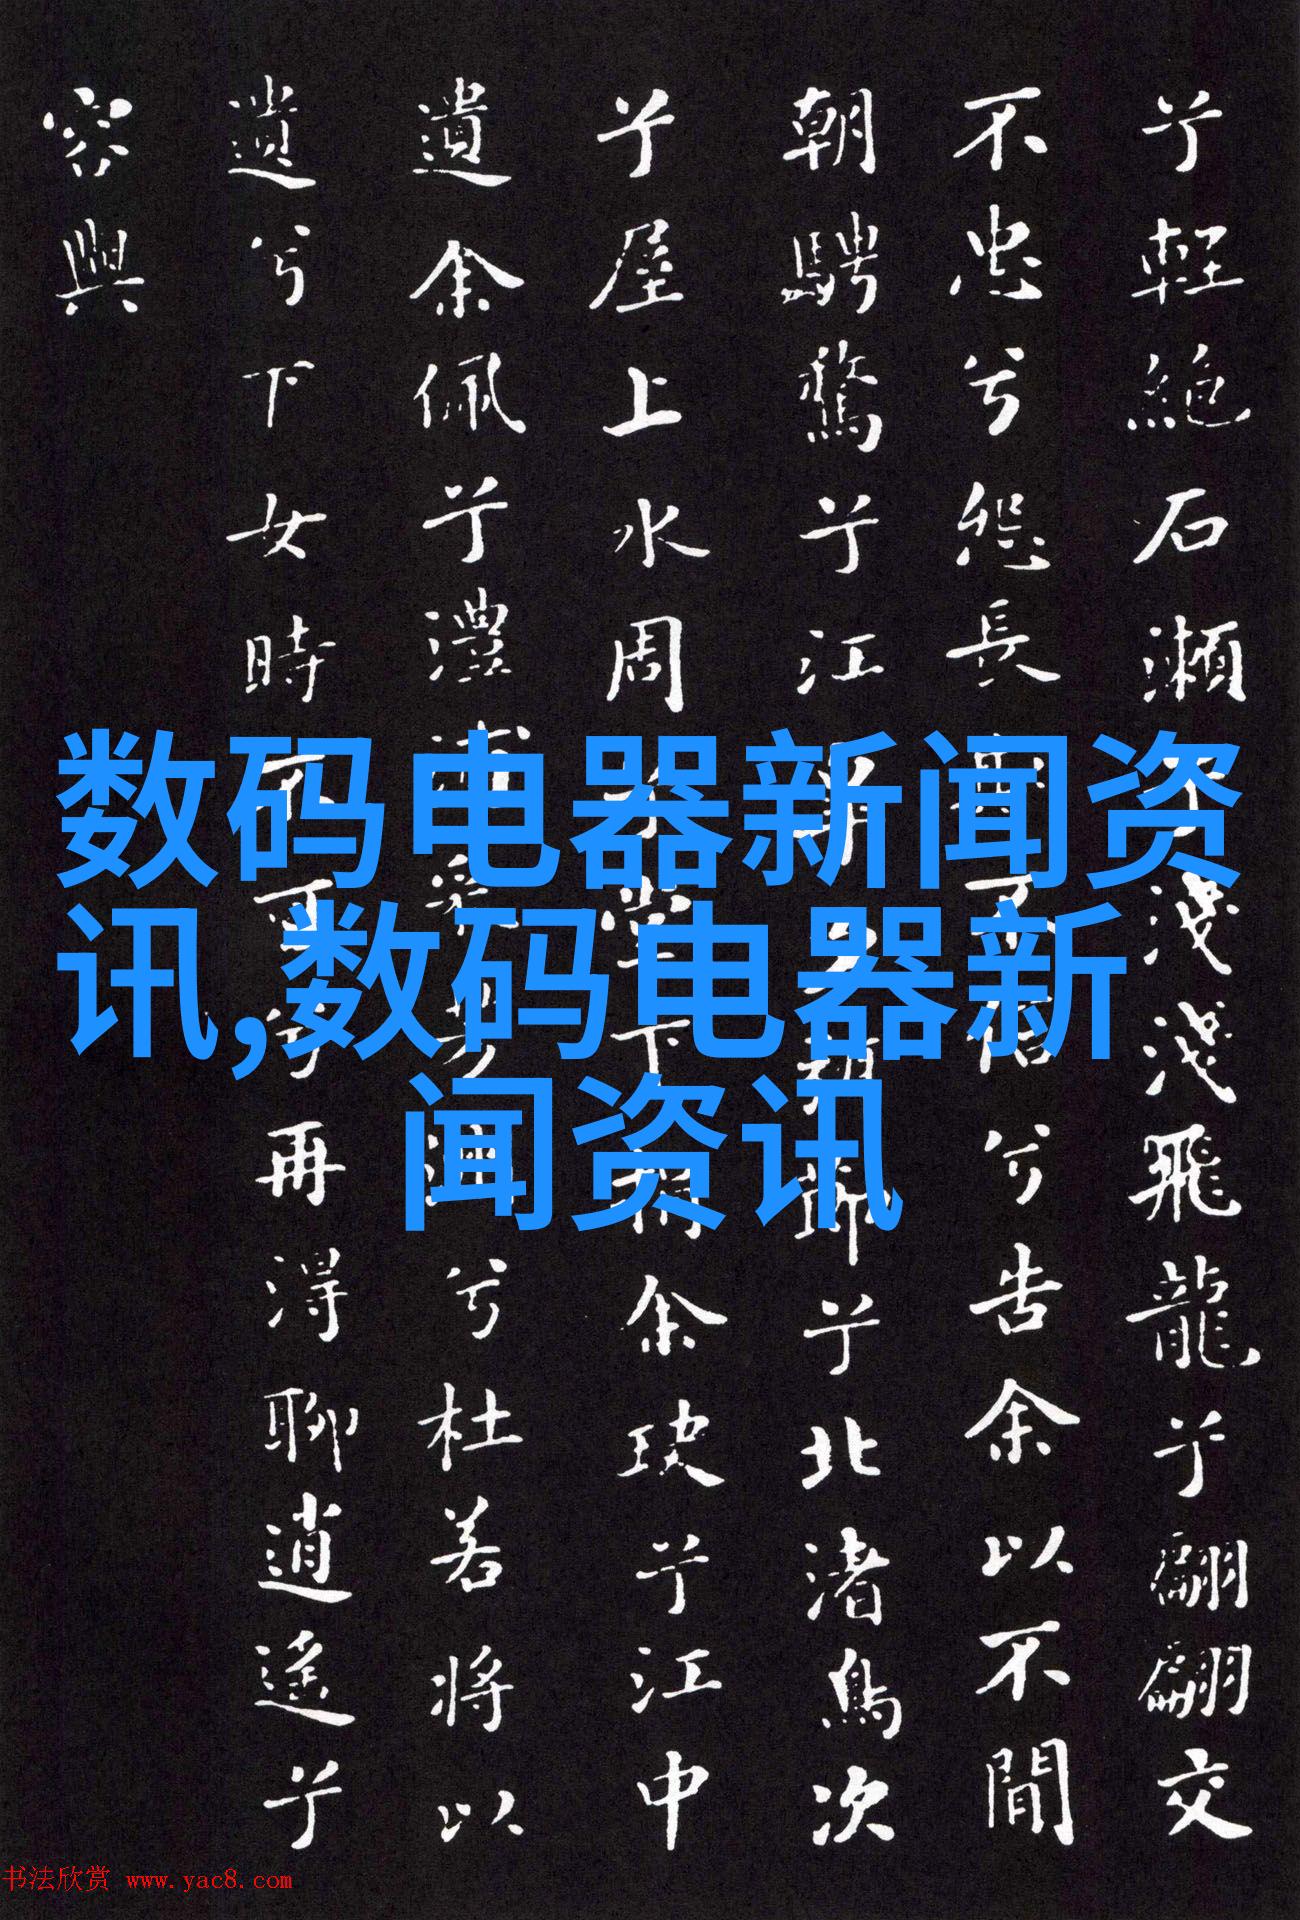 兮輕絶石瀬兮淺淺飛龍兮翩翩交
不忠兮怨長期不信兮告余以不閒
朝騁騖兮江皋夕弭節兮北渚鳥次
兮屋上水周兮堂下捐余玦兮江中
遺余佩兮澧浦采芳洲兮杜若將以
遺兮下女時不可兮再得聊逍遥兮
容與
数码电器新闻资
讯,数码电器新
闻资讯
书法欣赏 www.yac8.com